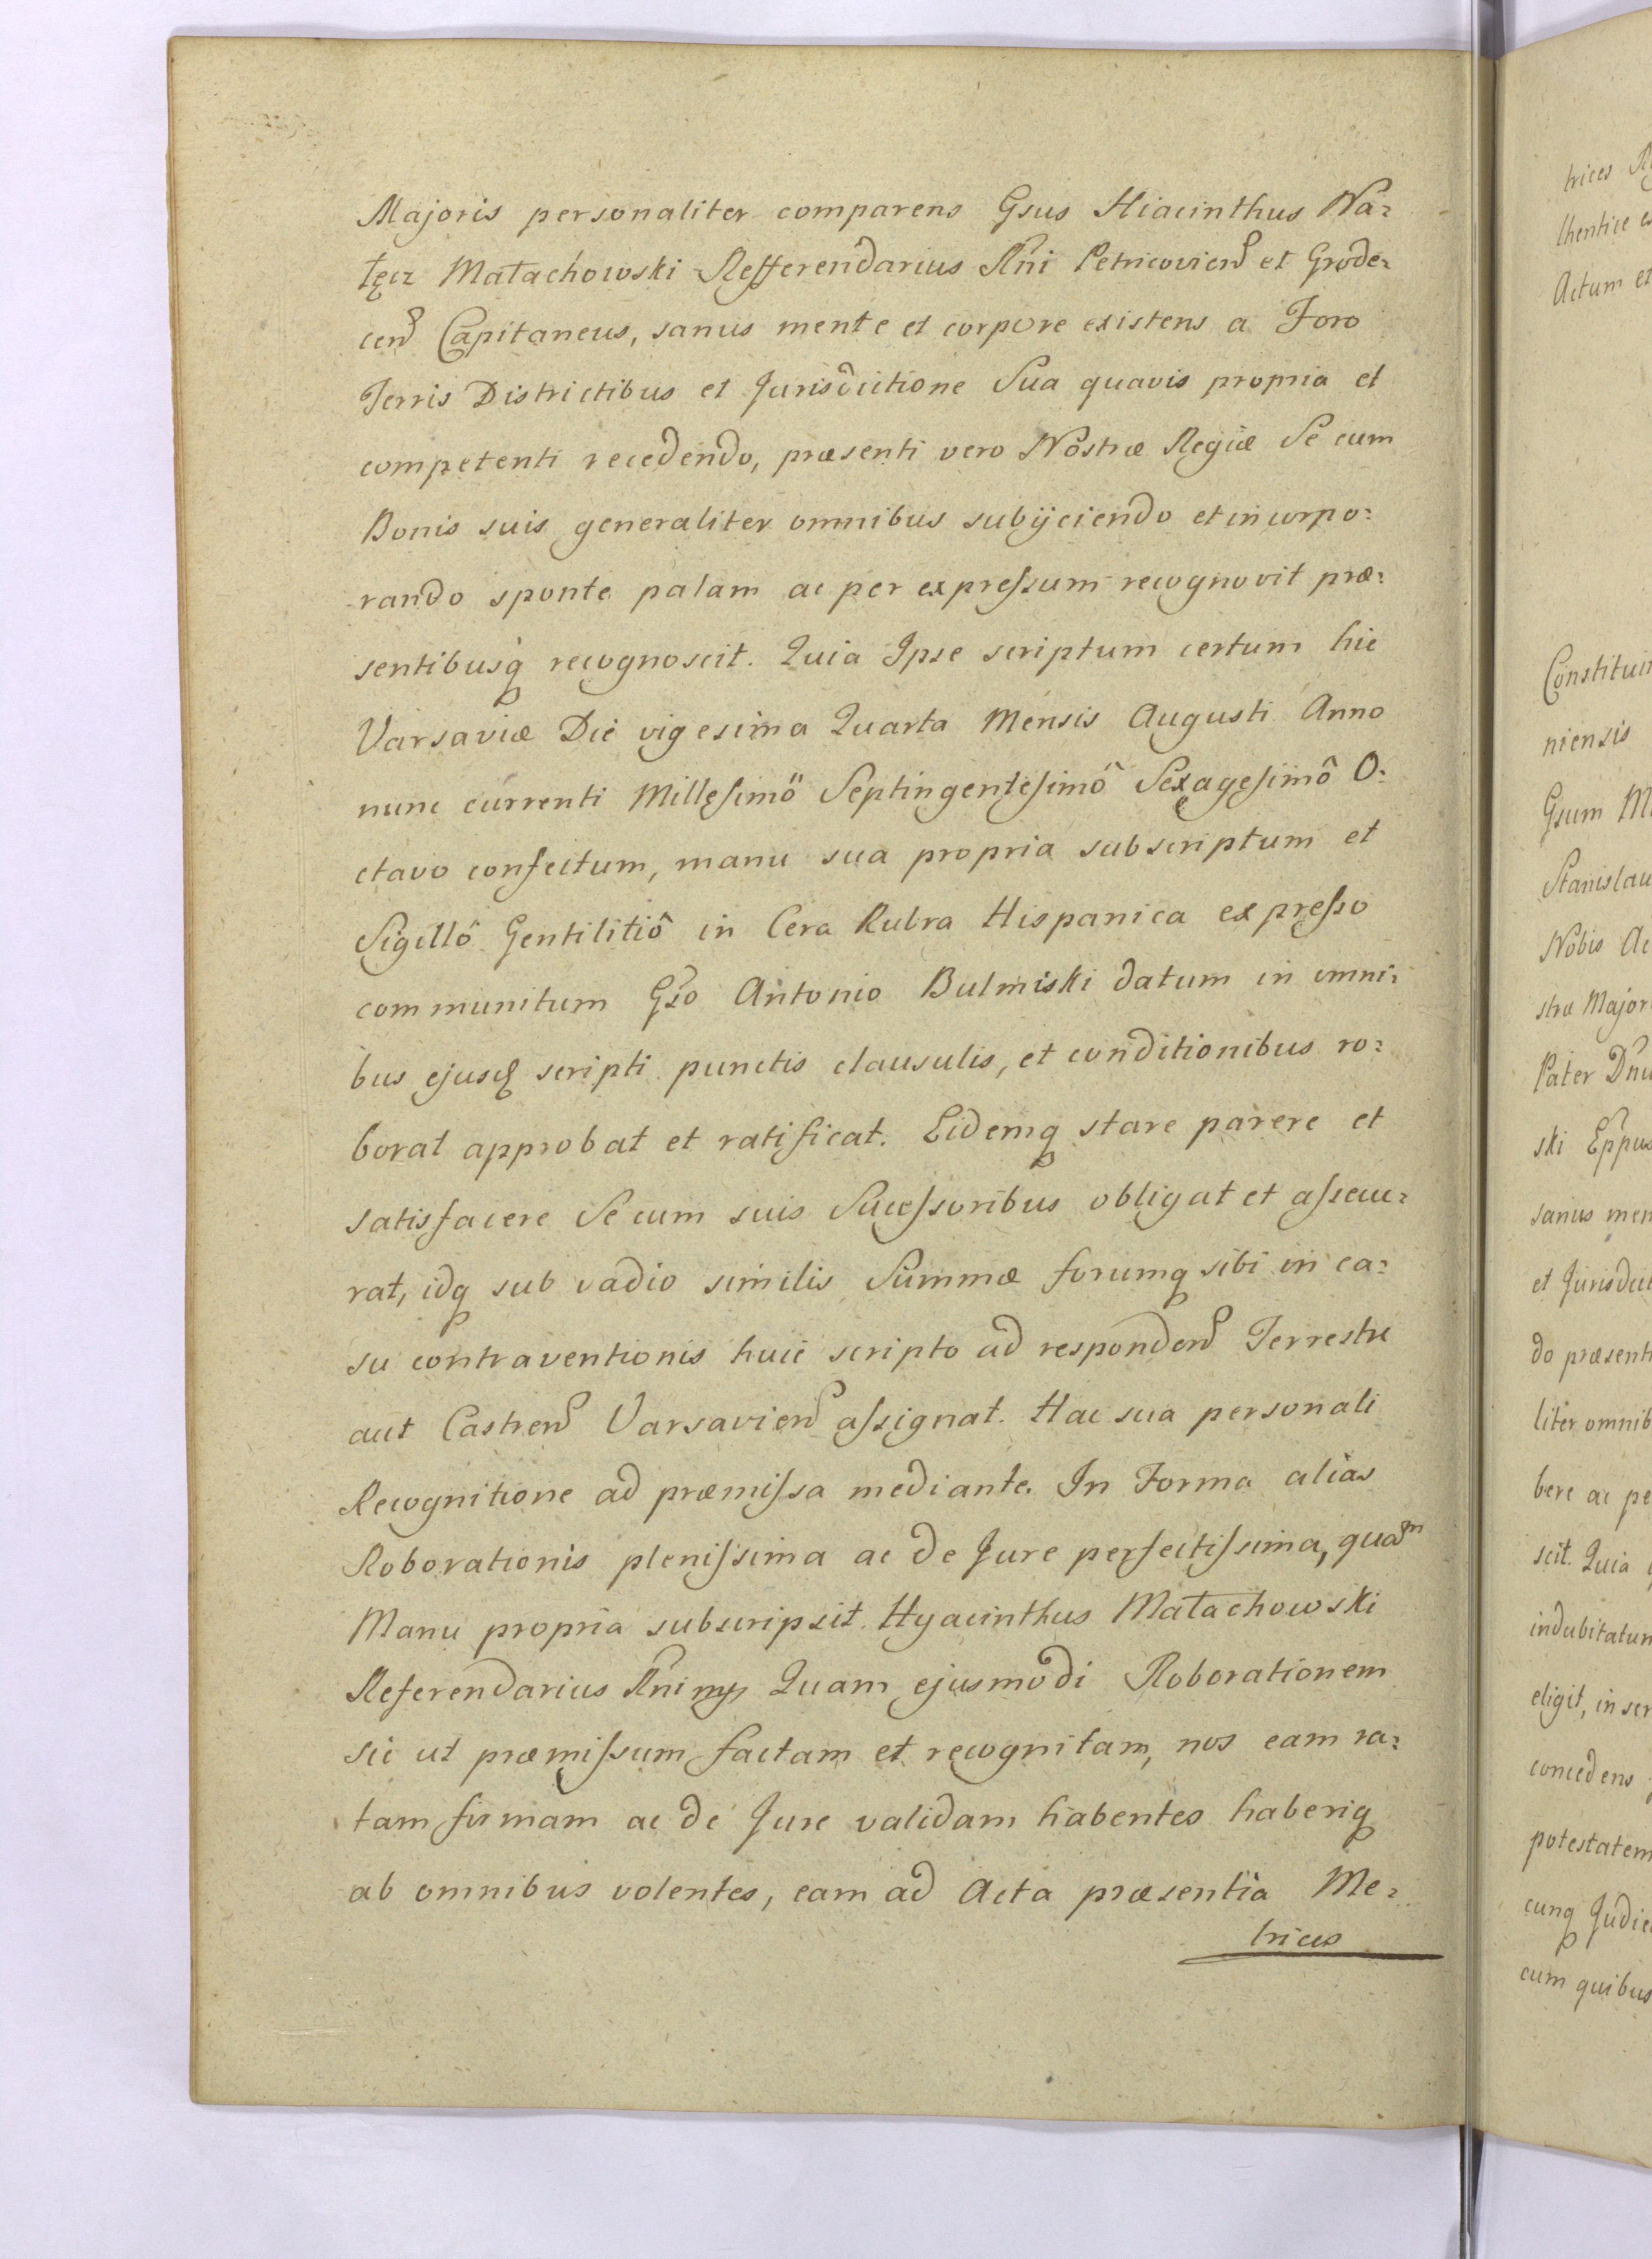 Majoris personaliter comparens Gsus Hiacinthus Na=
łęcz Małachowski Refferendarius Rni Petricovien et Grode=
cen Capitaneus, sanus mente et corpore existens a Foro
Terris Districtibus et Jurisdictione Sua quavis propria et
competenti recedendo, præsenti vero Nostræ Regiæ Se cum
Bonis suis generaliter omnibus subijciendo et incorpo=
rando sponte palam ac per expreſsum recognovit præ=
sentibusq recognoscit. Quia Ipse scriptum certum hic
Varsaviæ Die vigesima Quarta Mensis Augusti Anno
nunc currenti Milleſimô Septingenteſimô Sexageſimô O=
ctavo confectum, manu sua propria subscriptum et
Sigillô Gentilitiô in Cera Rubra Hispanica expreſso
communitum Gso Antonio Bulmiski datum in omni=
bus ejusq scripti punctis clausulis, et conditionibus ro=
borat approbat et ratificat. Eidemq stare parere et
satisfacere Se cum suis Succeſsoribus obligat et aſsecu=
rat, idq sub vadio similis Summæ forumq sibi in ca=
su contraventionis huic scripto ad responden Terrestre
aut Castren Varsavien aſsignat. Hac sua personali
Recognitione ad præmiſsa mediante. In Forma alias
Roborationis pleniſsima ac de Jure perfectiſsima, quam
Manu propria subscripsit. Hyacinthus Małachowski
Referendarius Rni mp Quam ejusmodi Roborationem
sic ut præmiſsum factam et recognitam, nos eam ra=
tam firmam ac de Jure validam habentes haberiq
ab omnibus volentes, eam ad Acta præsentia Me=
trices
trices
thentice
Actum et
Constitui
niensis
Gsum
Stanislau
Nobis
stræ Major
Pater Dnu
ski Eppus
sanus men
et Jurisdict
do præsenti
liter omnib
bere ac pe
scit. Quia
indubitatum
eligit, in ser
concedens
potestatem
cunq Judici
cum quibus